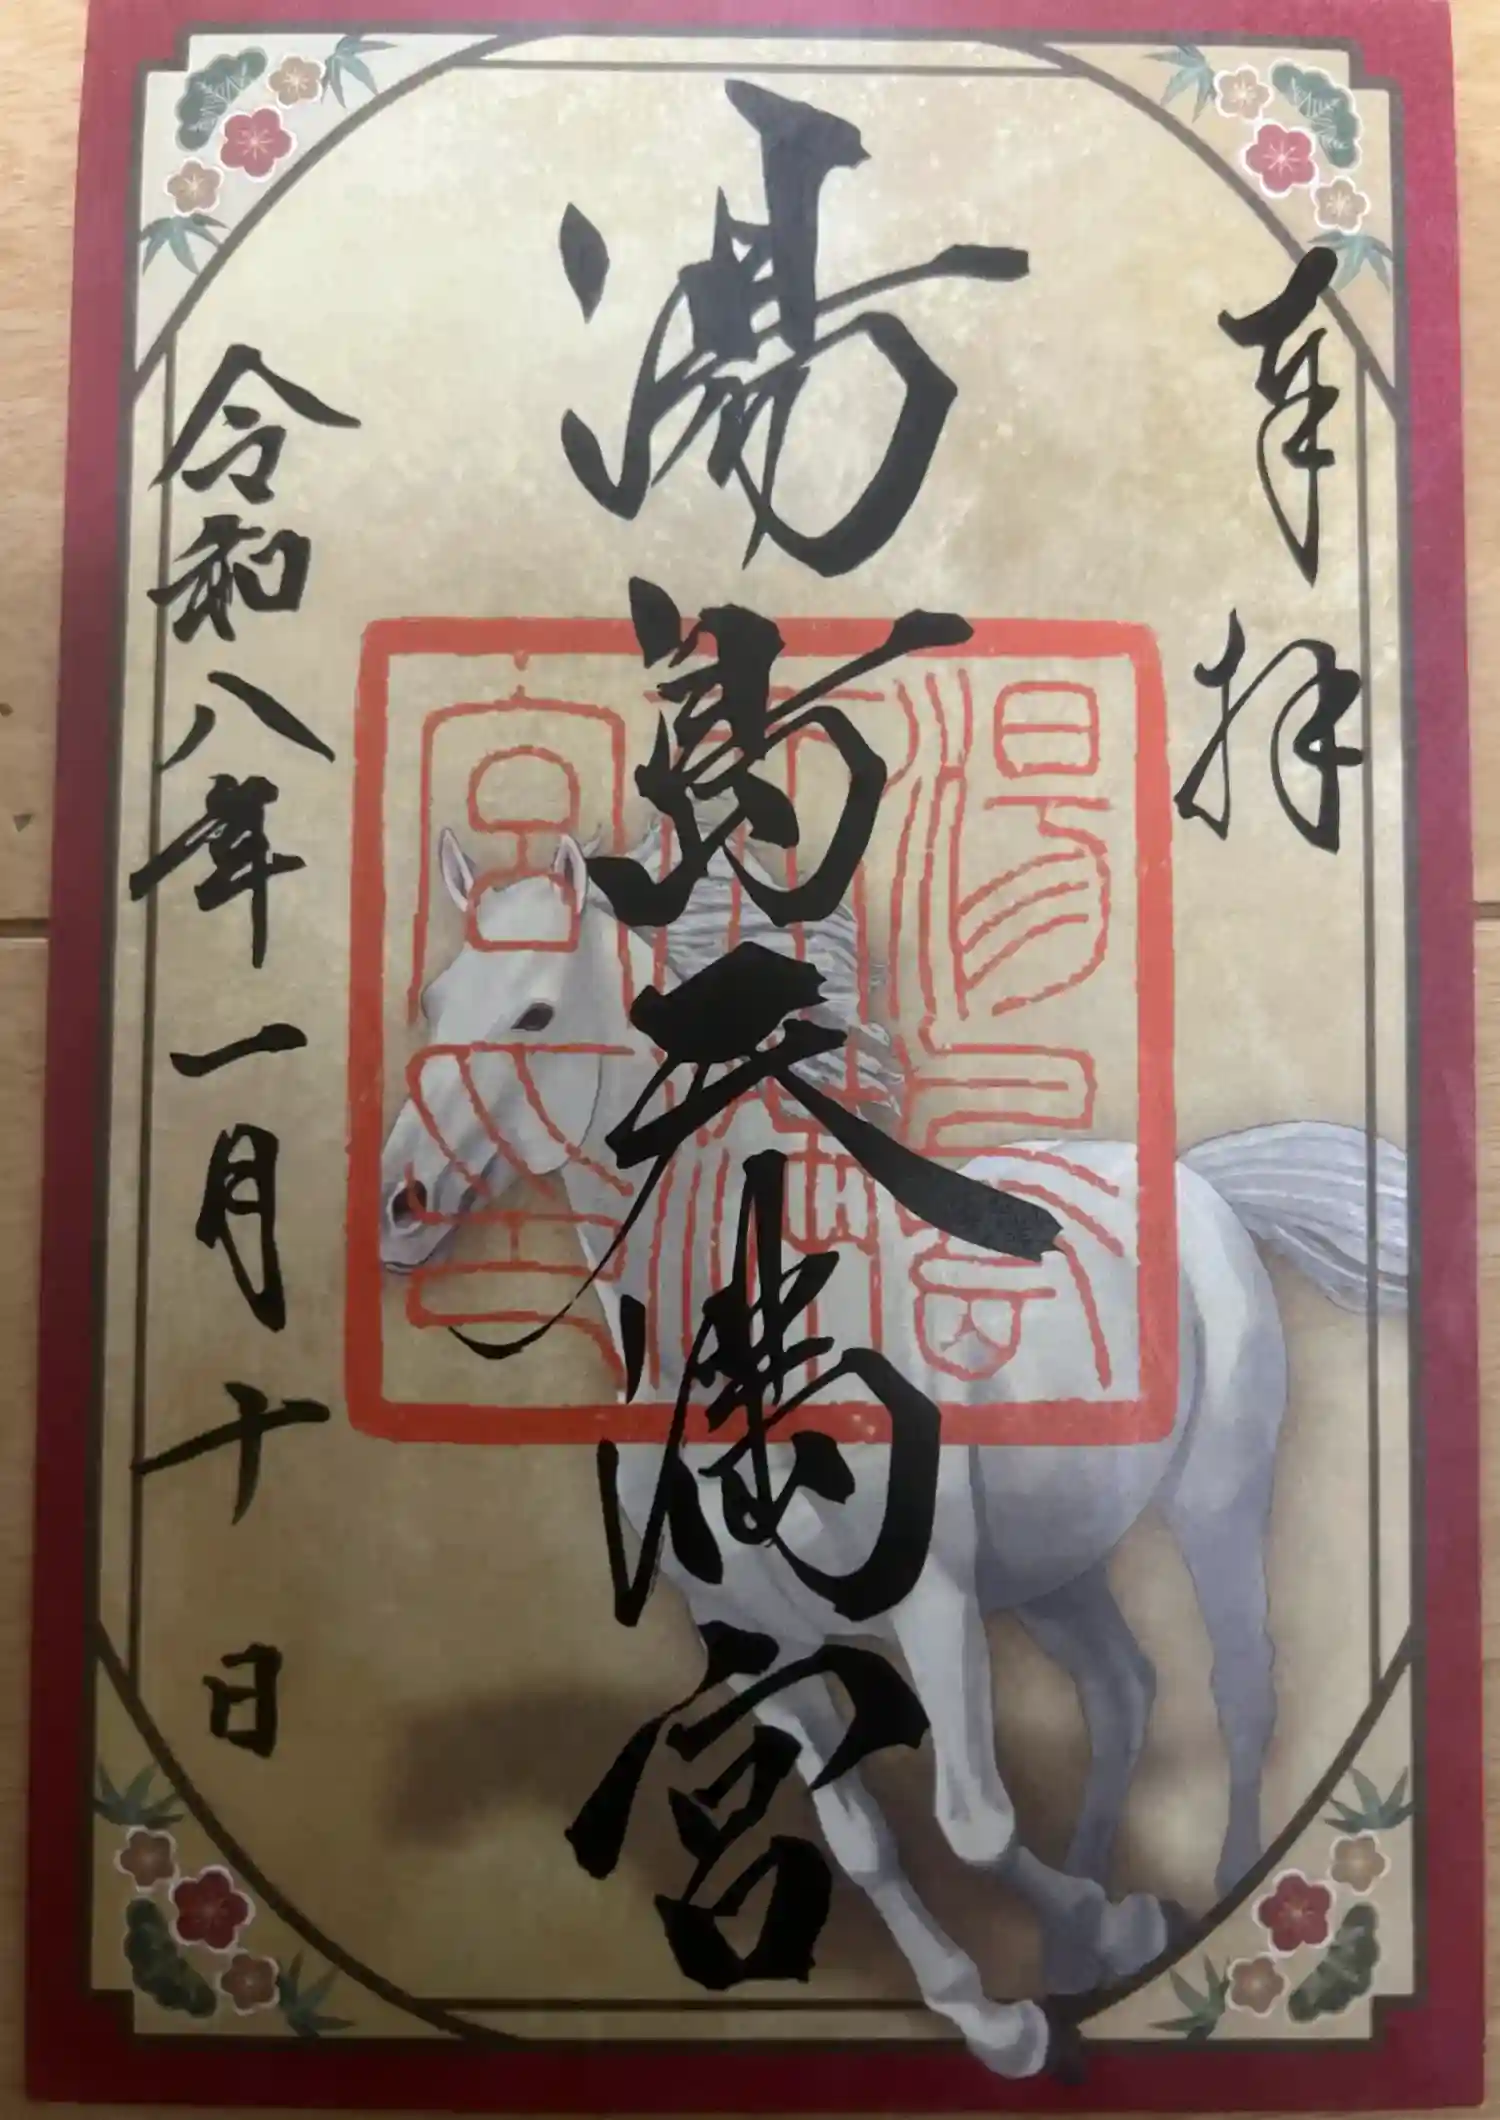 奉拝
湯島天満宮
湯島天神宮印
令和八年一月十日